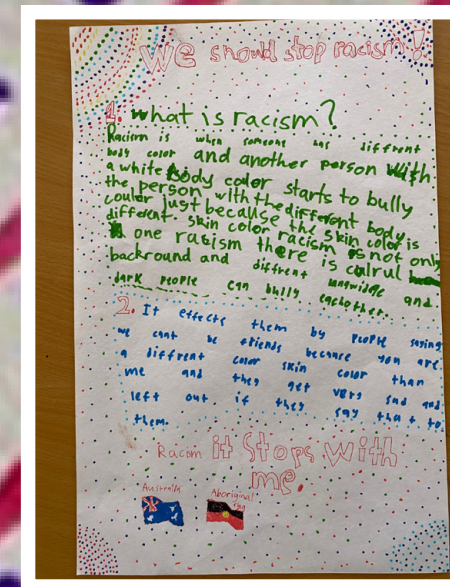 We should stop racism!
1. What is racism?
Racism is when someone has diffrent
body color and another person with
a white body color starts to bully
the person with the different body
couler just because the skin color is
different. skin color racism is not only
one racism there is culrul
backround and diffrent langwidge and
dark people can bully eachother.
2. It effects them by people saying
we cant be friends because you are
a diffrent color skin color than
me and they get very sad and
left out if they say that to
them.
Racism it Stops with
me.
Australia Aboriginal